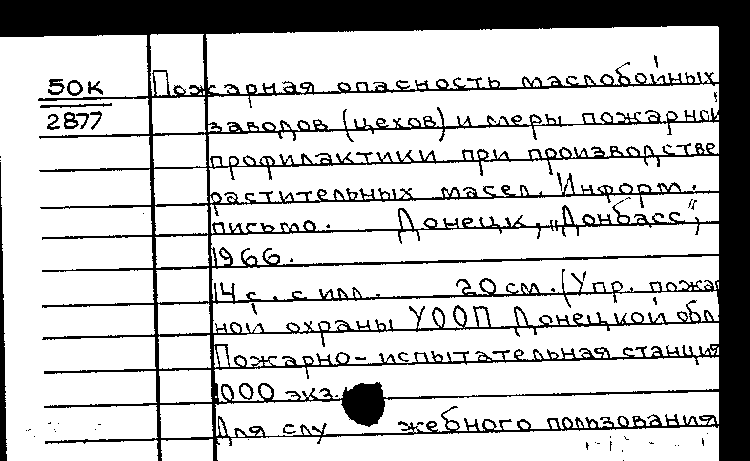 50К
2877
Пожарная опасность маслобойных
заводов (цехов) и меры пожарной
профилактики при производстве
растительных масел. Информ.
письмо. Донецк, „Донбасс",
1966.
14 с. с илл. 20 см. (Упр. пожар
ной охраны УООП Донецкой обл.
Пожарно-испытательная станция
1000 экз.
Для слу жебного пользования